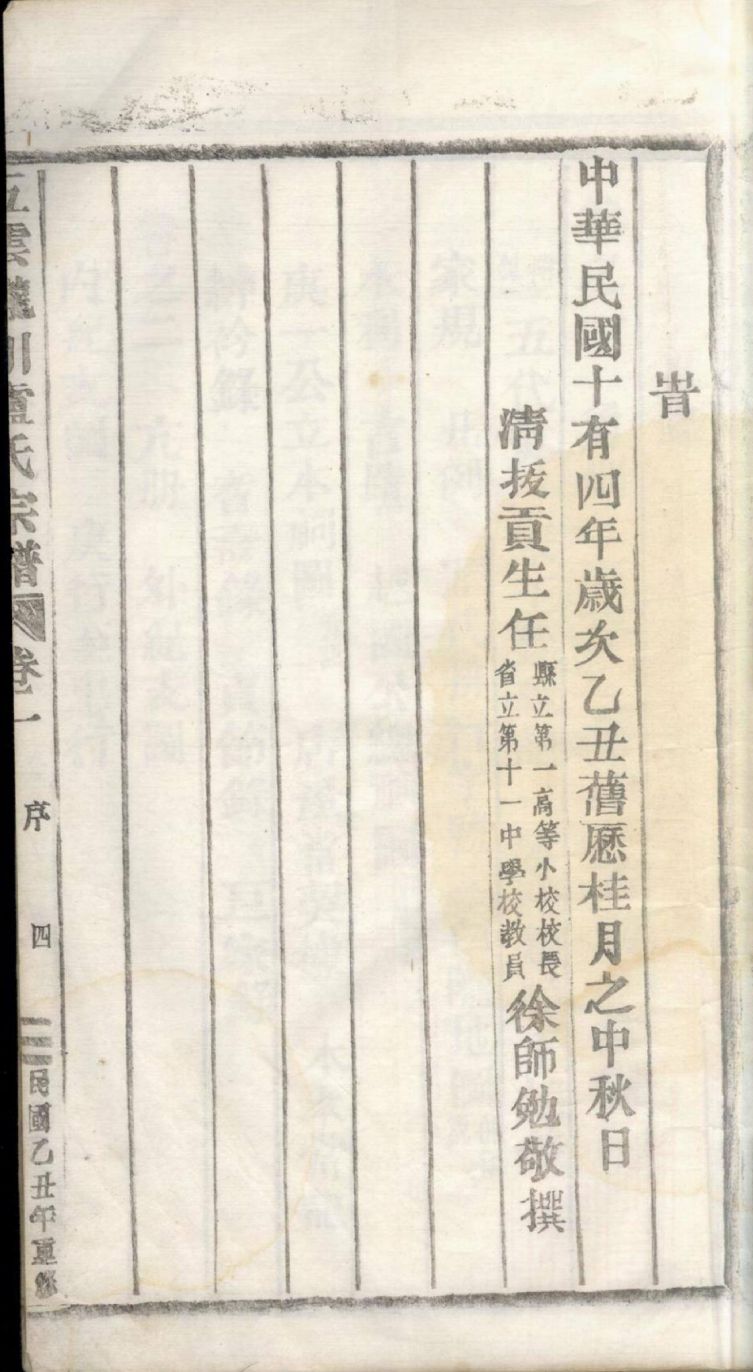 旹
中華民國十有四年歲次乙丑舊厯桂月之中秋日
清拔貢生任
縣立第一高等小校校長
省立第十一中學校教員
徐師勉敬撰
五雲
川盧氏宗譜
卷一
序
四
民國乙丑年重修